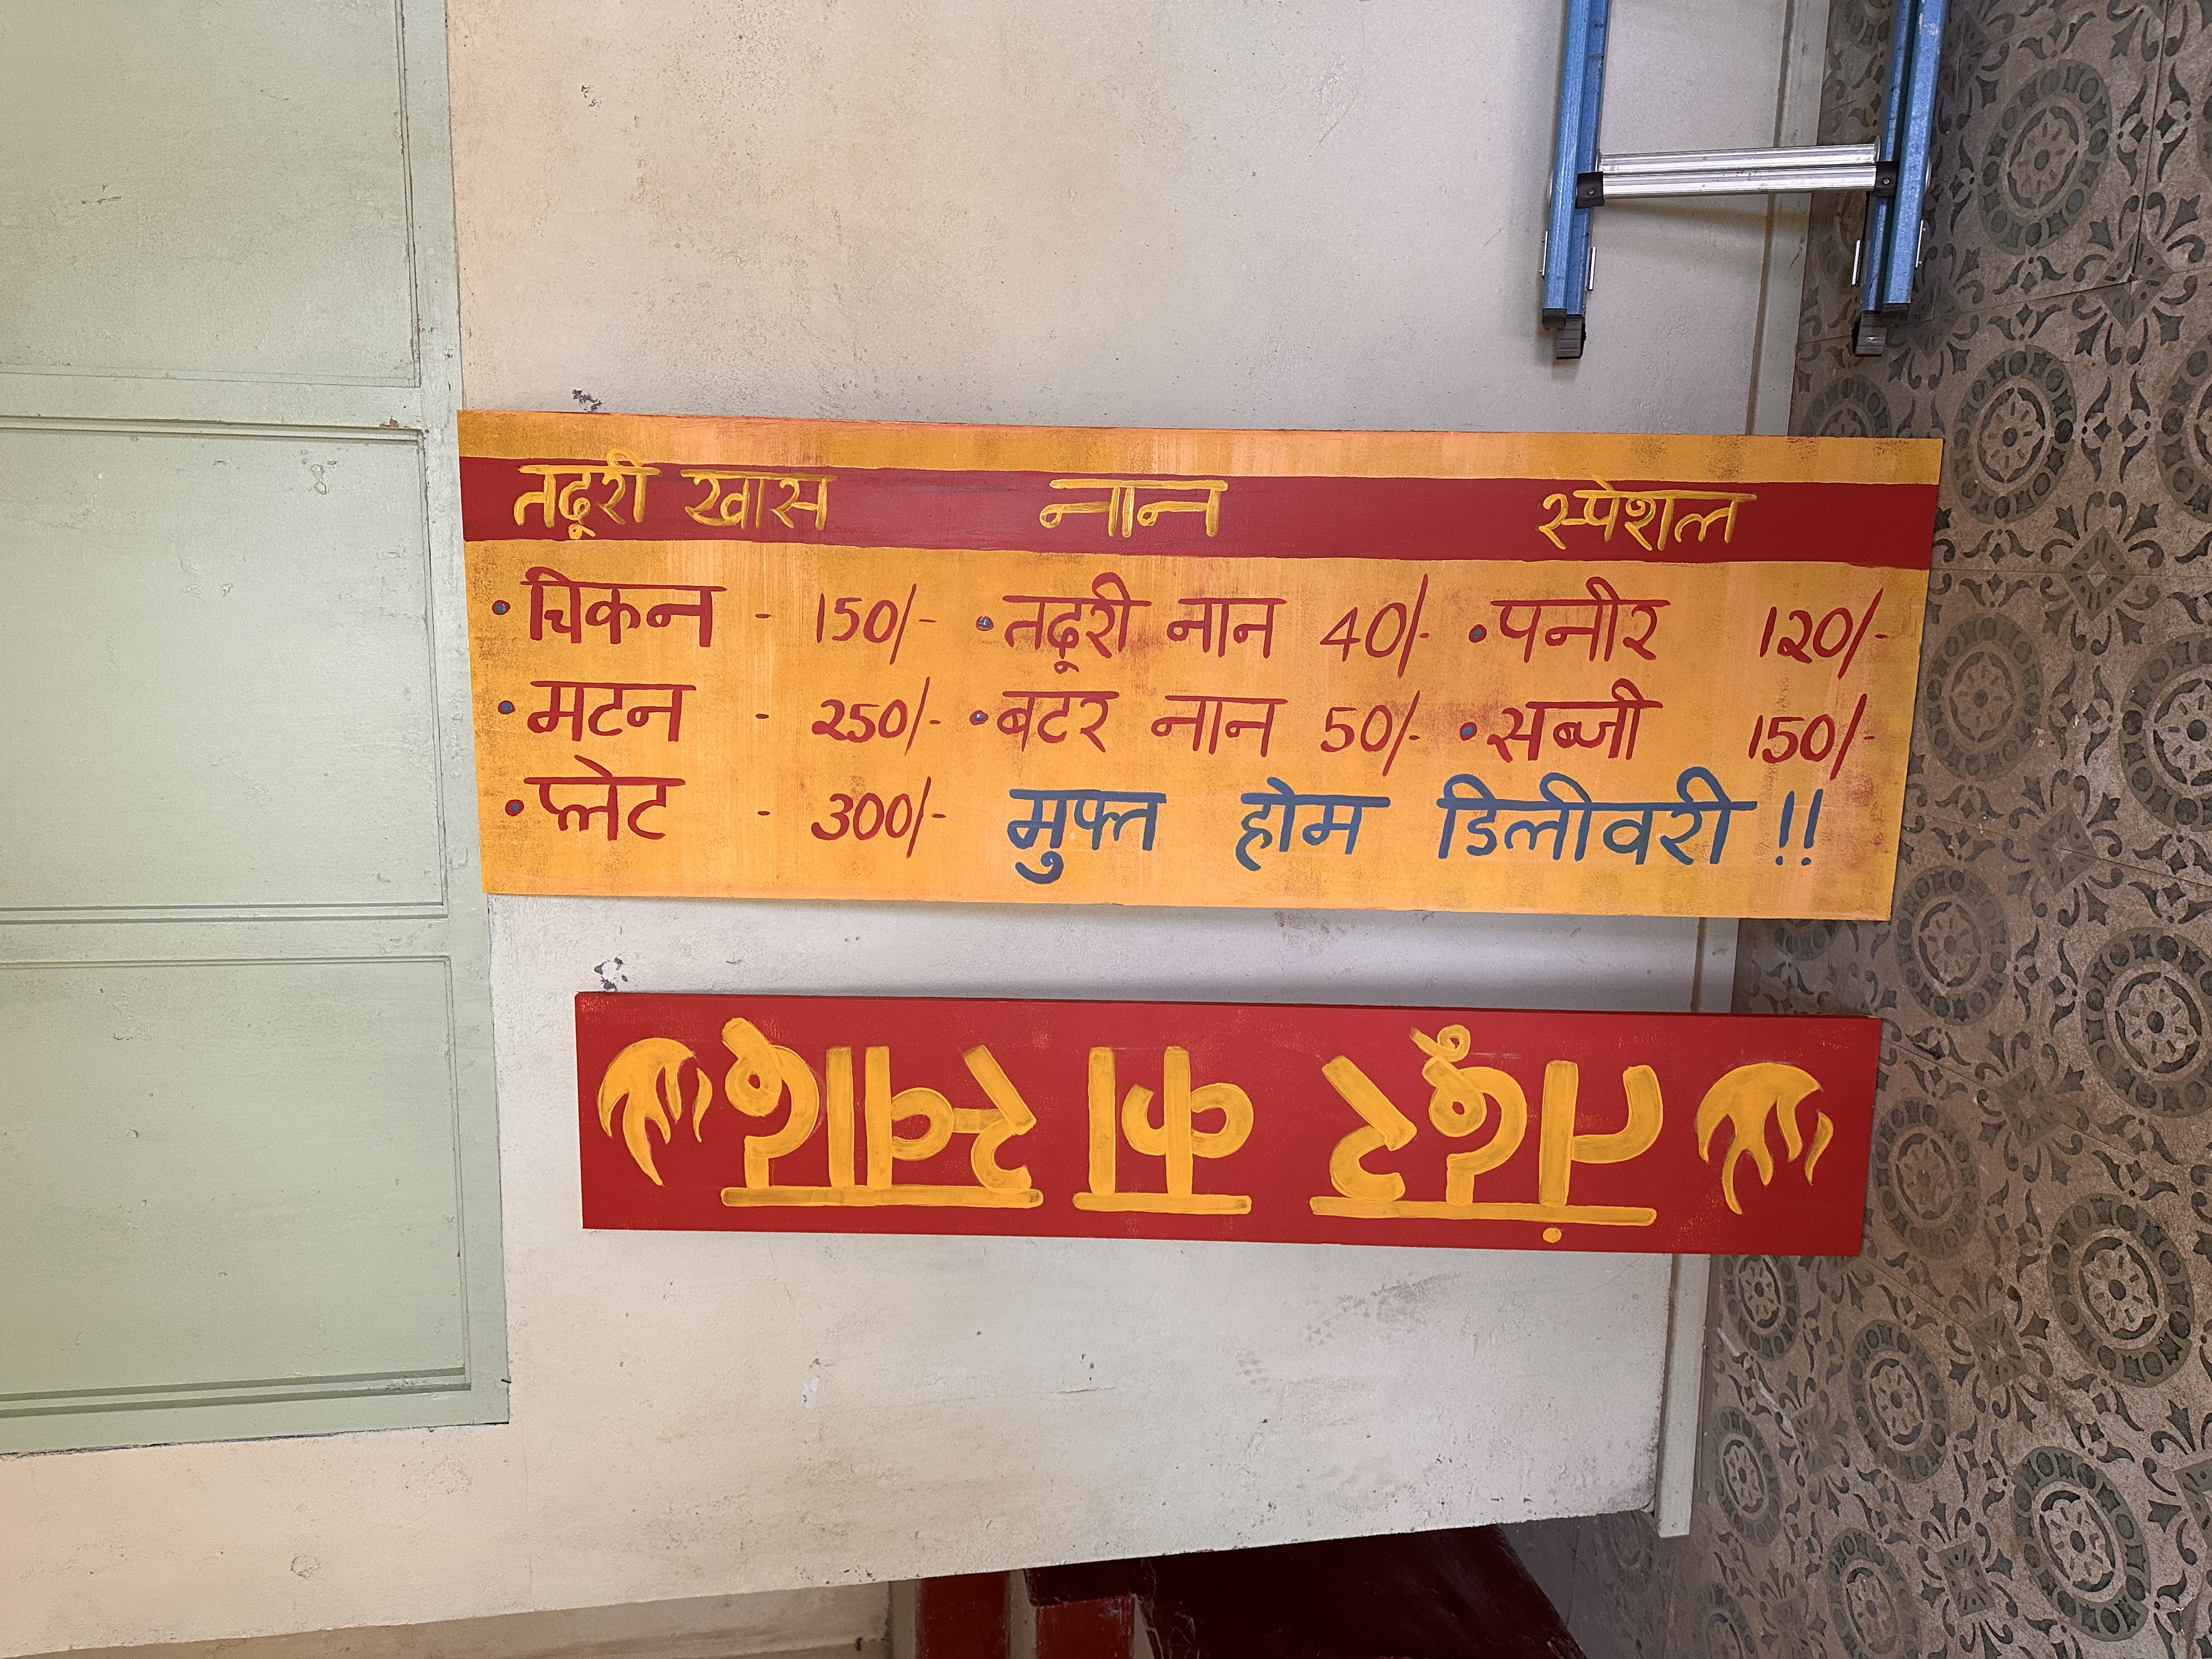 तदूरी खास नान स्पेशल
• चिकन - 150/- • तदूरी नान 40/- • पनीर 120/-
• मटन - 250/- • बटर नान 50/- • सब्जी 150/-
• प्लेट - 300/- मुफ्त होम डिलीवरी !!
तंदूर का स्वाद